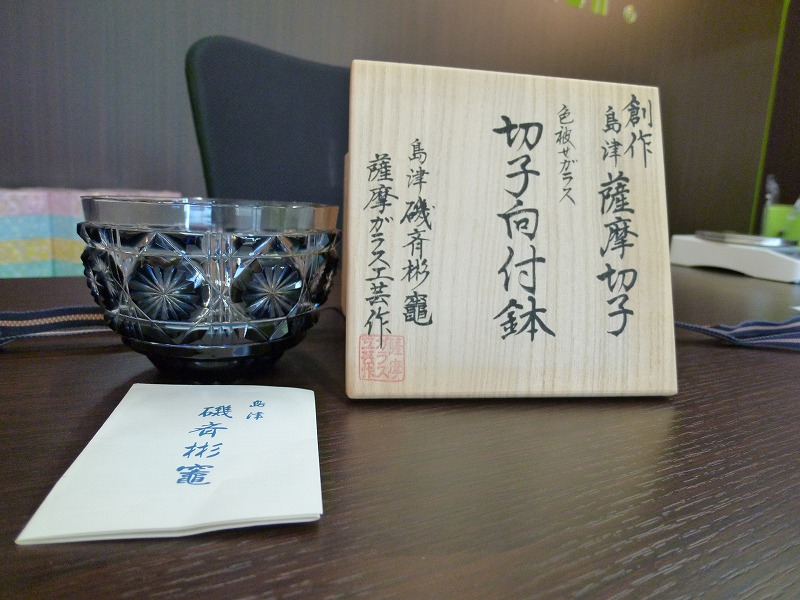 創作
島津 薩摩切子
色被せガラス
切子向付鉢
島津 磯斉彬竈
薩摩ガラス工芸作
薩摩
ガラス
工芸作
島津
磯斉彬竈